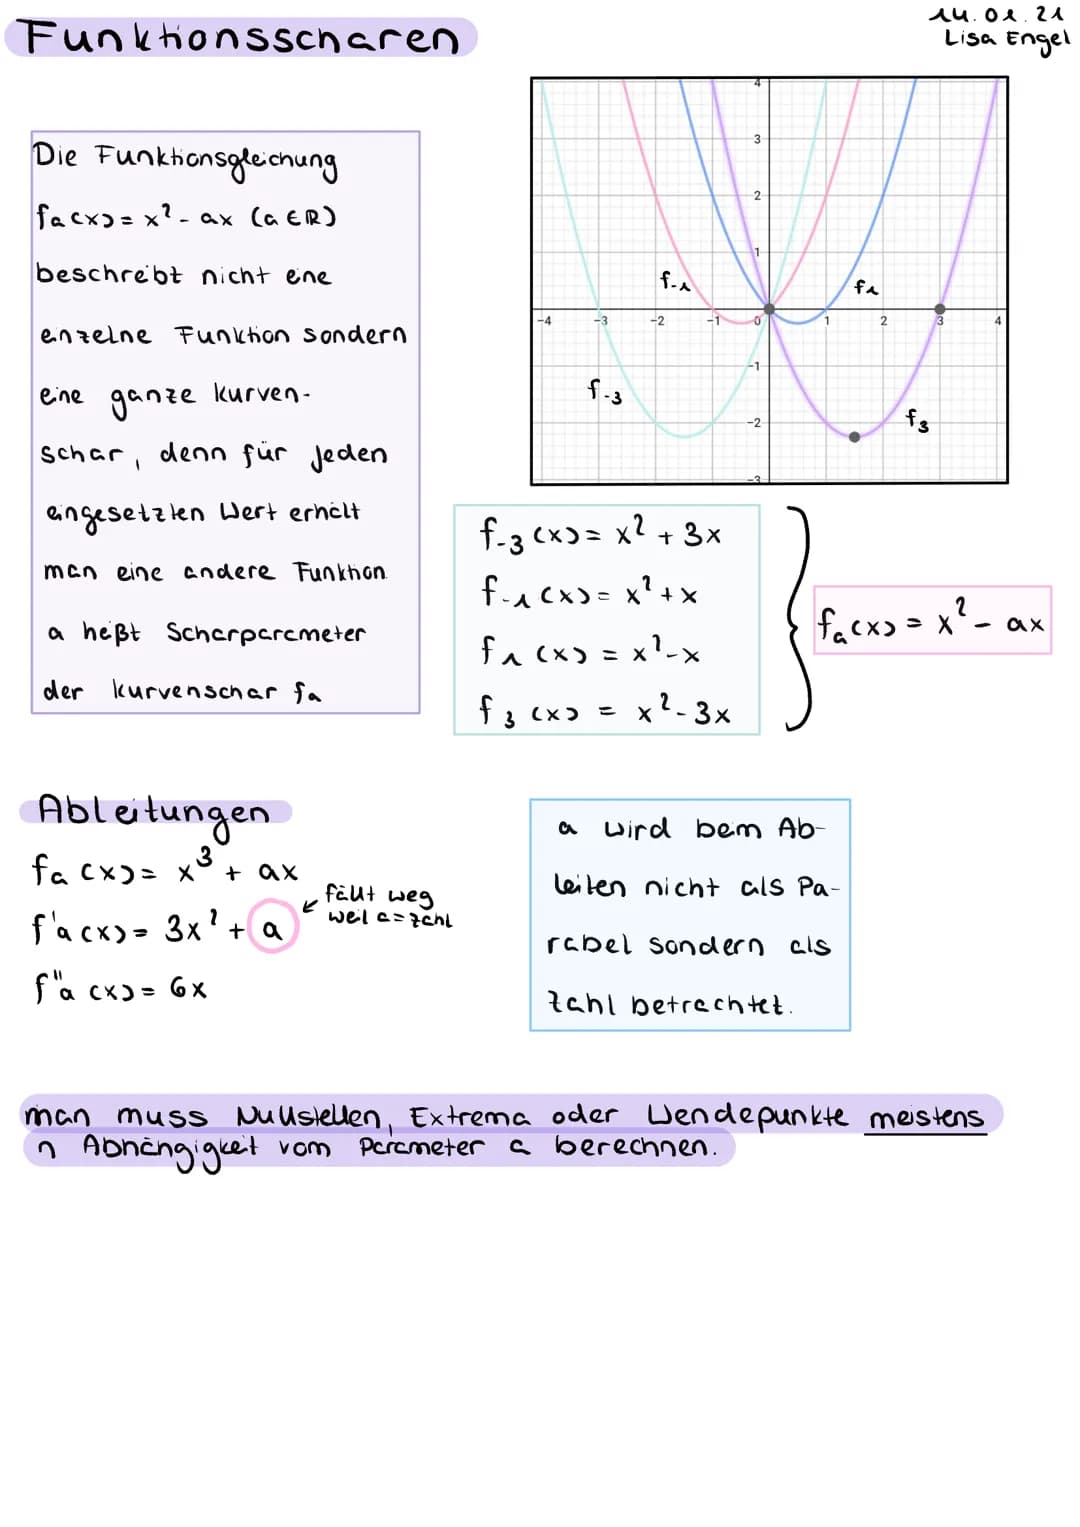 Funktionsscharen
14.01.21
Lisa Engel
Die Funktionsgleichung
fa(x) = x² - ax (a ∈ ℝ)
beschreibt nicht eine
einzelne Funktion sondern
eine ganze Kurven-
schar, denn für jeden
eingesetzten Wert erhält
man eine andere Funktion
a heißt Scharparameter
der Kurvenschar fa
4
3
2
1
f-1
f1
-4 -3 -2 -1 0 1 2 3 4
-1
f-3
-2
f3
-3
f-3(x) = x² + 3x
f-1(x) = x² + x
f1(x) = x² - x
f3(x) = x² - 3x
fa(x) = x² - ax
Ableitungen
fa(x) = x³ + ax
f'a(x) = 3x² + a
fällt weg
weil a = Zahl
f"a(x) = 6x
a wird beim Ab-
leiten nicht als Pa-
rabel sondern als
Zahl betrachtet.
man muss Nullstellen, Extrema oder Wendepunkte meistens
in Abhängigkeit vom Parameter a berechnen.